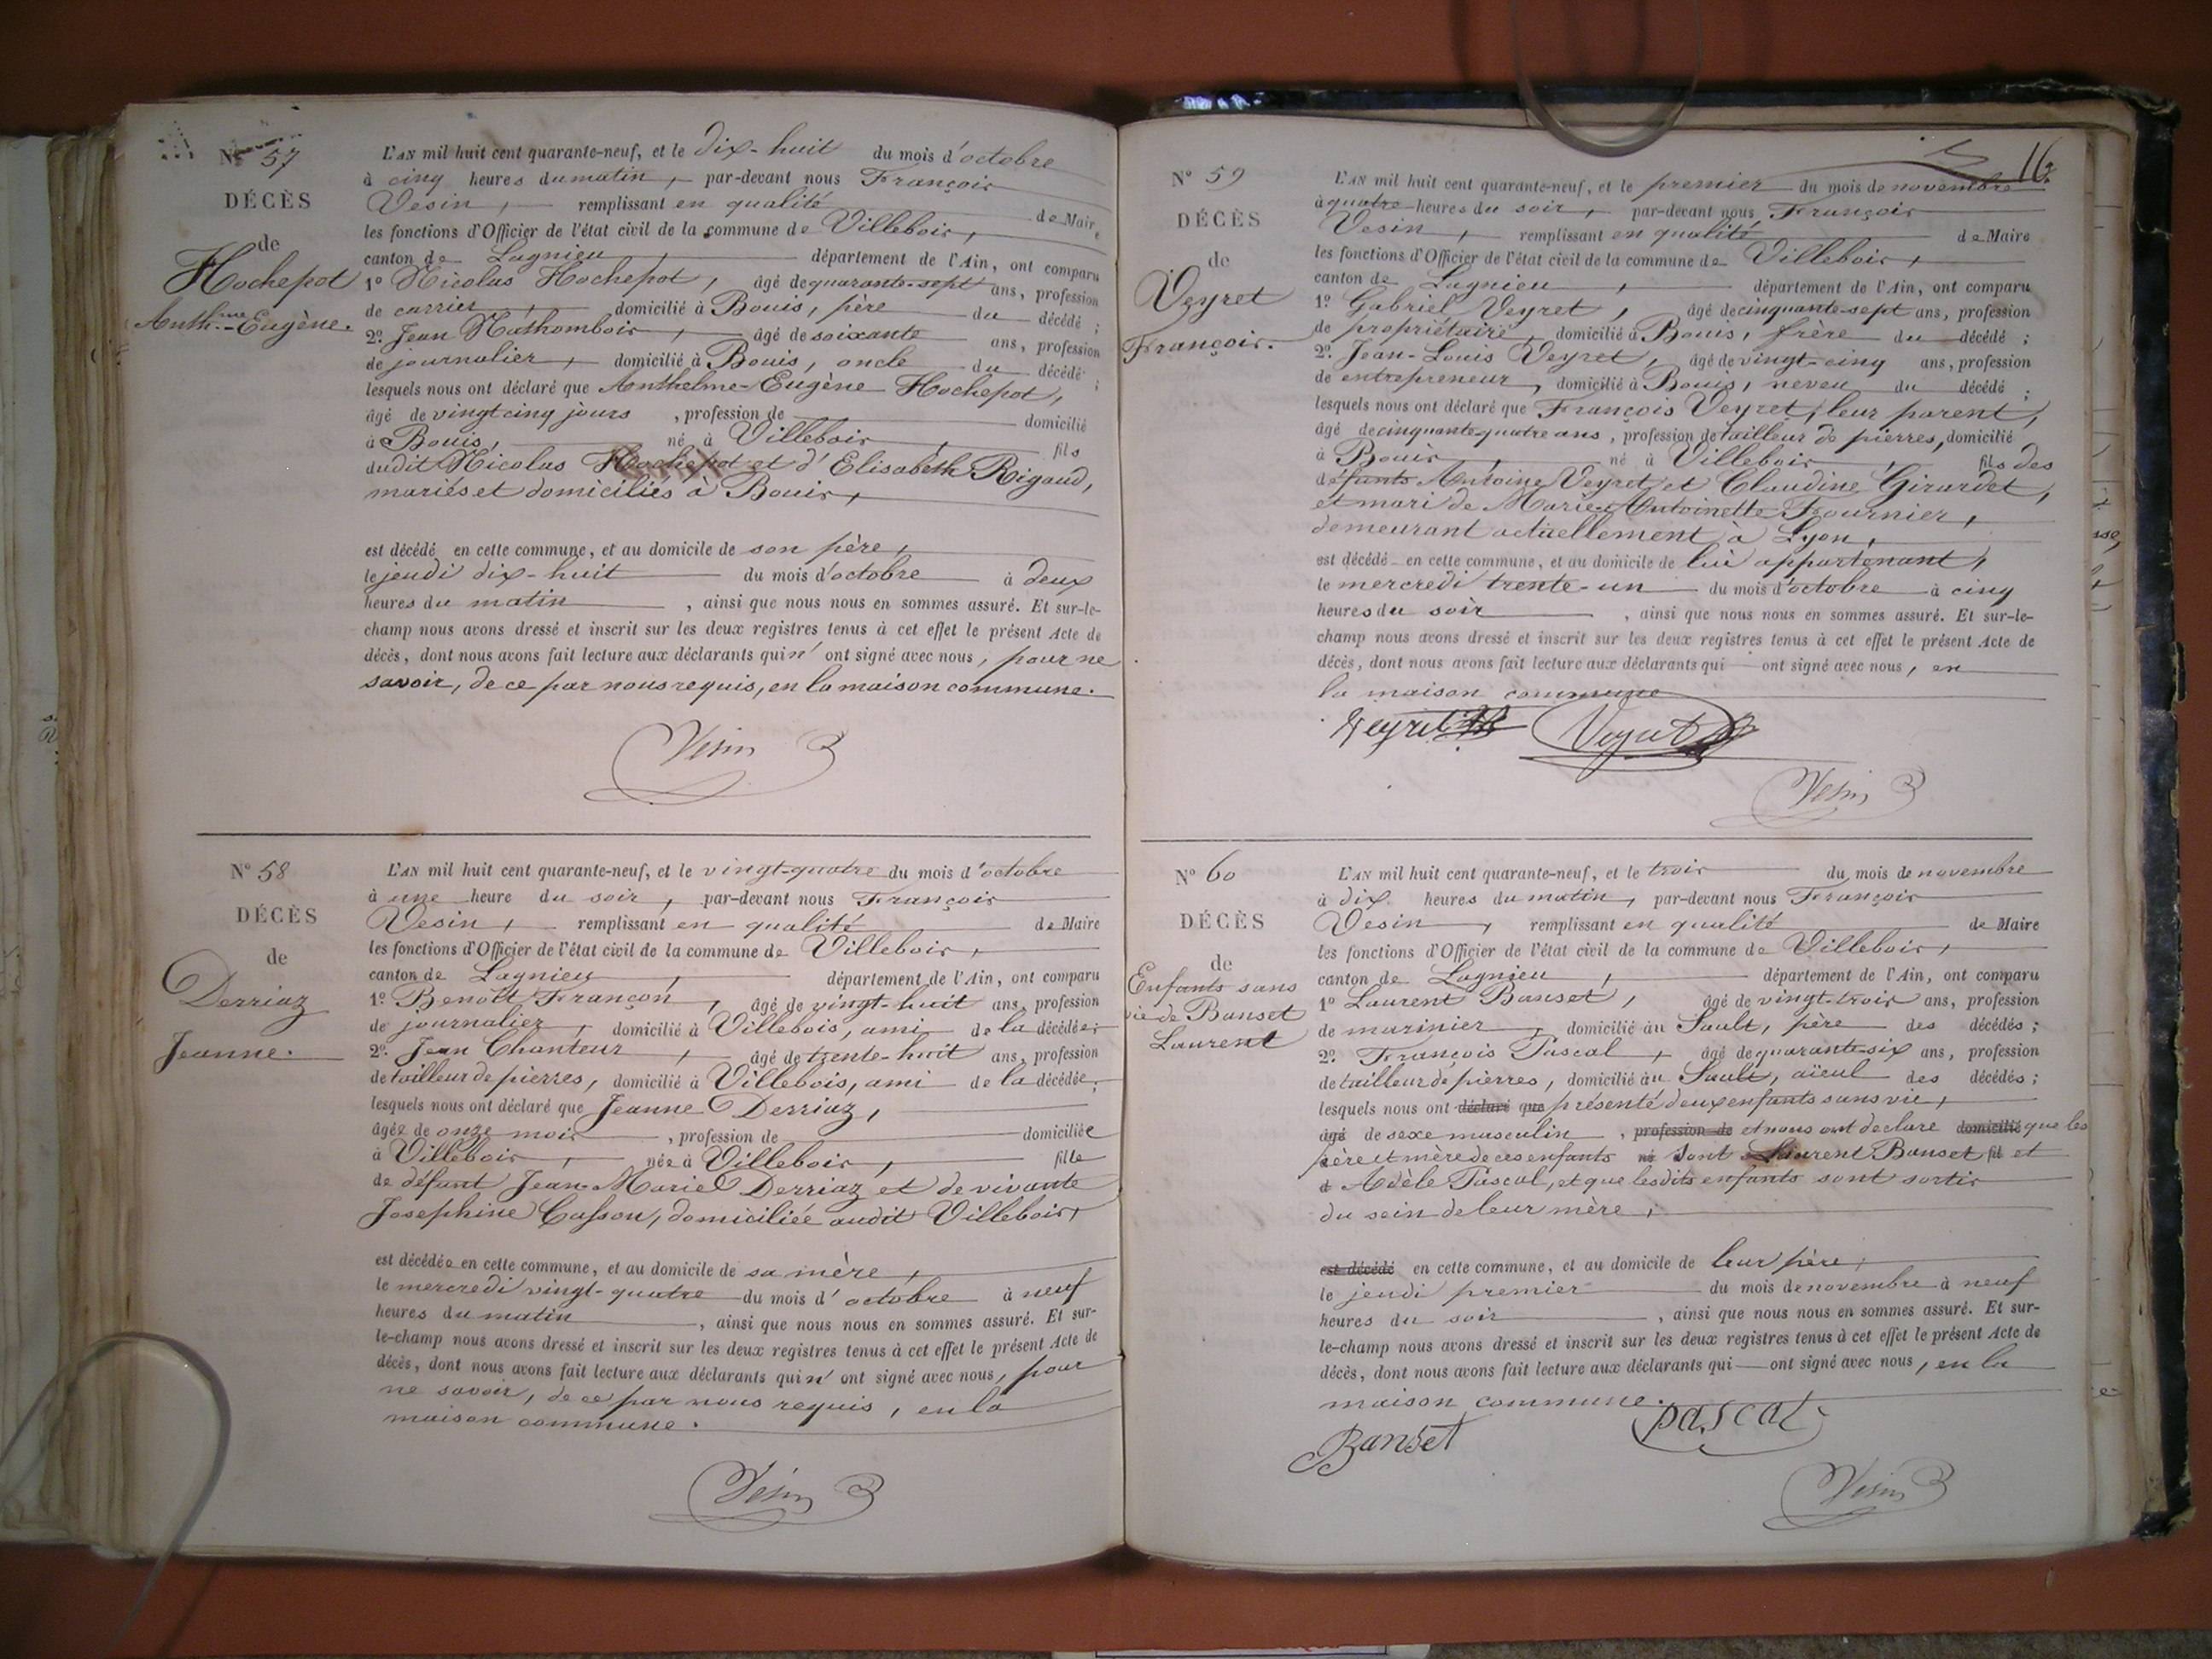 N° 57
DÉCÈS
de
Hochepot
Anth.me-Eugène.
L'AN mil huit cent quarante-neuf, et le dix-huit du mois d'octobre
à cinq heures du matin, par-devant nous François
Vesin, remplissant en qualité de Maire
les fonctions d'Officier de l'état civil de la commune de Villebois,
canton de Lagnieu, département de l'Ain, ont comparu
1° Nicolas Hochepot, âgé de quarante-sept ans, profession
de carrier, domicilié à Bouis, père du décédé;
2° Jean Mathombois, âgé de soixante ans, profession
de journalier, domicilié à Bouis, oncle du décédé;
lesquels nous ont déclaré que Anthelme-Eugène Hochepot,
âgé de vingt cinq jours, profession de domicilié
à Bouis, né à Villebois, fils
dudit Nicolas Hochepot et d'Elisabeth Rigaud,
mariés et domiciliés à Bouis,
est décédé en cette commune, et au domicile de son père,
le jeudi dix-huit du mois d'octobre à deux
heures du matin, ainsi que nous nous en sommes assuré. Et sur-le-
champ nous avons dressé et inscrit sur les deux registres tenus à cet effet le présent Acte de
décès, dont nous avons fait lecture aux déclarants qui n'ont signé avec nous, pour ne
savoir, de ce par nous requis, en la maison commune.
Vesin
N° 58
DÉCÈS
de
Derriaz
Jeanne.
L'AN mil huit cent quarante-neuf, et le vingt-quatre du mois d'octobre
à une heure du soir, par-devant nous François
Vesin, remplissant en qualité de Maire
les fonctions d'Officier de l'état civil de la commune de Villebois,
canton de Lagnieu, département de l'Ain, ont comparu
1° Benoît Françon, âgé de vingt-huit ans, profession
de journalier, domicilié à Villebois, ami de la décédée;
2° Jean Chanteur, âgé de trente-huit ans, profession
de tailleur de pierres, domicilié à Villebois, ami de la décédée;
lesquels nous ont déclaré que Jeanne Derriaz,
âgée de onze mois, profession de domiciliée
à Villebois, née à Villebois, fille
de défunt Jean-Marie Derriaz et de vivante
Josephine Casson, domiciliée audit Villebois,
est décédée en cette commune, et au domicile de sa mère,
le mercredi vingt-quatre du mois d'octobre à neuf
heures du matin, ainsi que nous nous en sommes assuré. Et sur-
le-champ nous avons dressé et inscrit sur les deux registres tenus à cet effet le présent Acte de
décès, dont nous avons fait lecture aux déclarants qui n'ont signé avec nous, pour
ne savoir, de ce par nous requis, en la
maison commune.
Vesin
16
N° 59
DÉCÈS
de
Veyret
François.
L'AN mil huit cent quarante-neuf, et le premier du mois de novembre
à quatre heures du soir, par-devant nous François
Vesin, remplissant en qualité de Maire
les fonctions d'Officier de l'état civil de la commune de Villebois,
canton de Lagnieu, département de l'Ain, ont comparu
1° Gabriel Veyret, âgé de cinquante-sept ans, profession
de propriétaire, domicilié à Bouis, frère du décédé;
2° Jean-Louis Veyret, âgé de vingt-cinq ans, profession
de entrepreneur, domicilié à Bouis, neveu du décédé;
lesquels nous ont déclaré que François Veyret, leur parent,
âgé de cinquante quatre ans, profession de tailleur de pierres, domicilié
à Bouis, né à Villebois, fils des
défunts Antoine Veyret et Claudine Girardet,
et mari de Marie-Antoinette Fournier,
demeurant actuellement à Lyon,
est décédé en cette commune, et au domicile de lui appartenant,
le mercredi trente-un du mois d'octobre à cinq
heures du soir, ainsi que nous nous en sommes assuré. Et sur-le-
champ nous avons dressé et inscrit sur les deux registres tenus à cet effet le présent Acte de
décès, dont nous avons fait lecture aux déclarants qui ont signé avec nous, en
la maison commune
Veyret Veyret
Vesin
N° 60
DÉCÈS
de
Enfants sans
vie de Banset
Laurent
L'AN mil huit cent quarante-neuf, et le trois du mois de novembre
à dix heures du matin, par-devant nous François
Vesin, remplissant en qualité de Maire
les fonctions d'Officier de l'état civil de la commune de Villebois,
canton de Lagnieu, département de l'Ain, ont comparu
1° Laurent Banset, âgé de vingt-trois ans, profession
de marinier, domicilié au Sault, père des décédés;
2° François Pascal, âgé de quarante-six ans, profession
de tailleur de pierres, domicilié au Sault, aïeul des décédés;
lesquels nous ont déclaré que présenté deux enfants sans vie,
âgé de sexe masculin, profession de et nous ont déclaré domicilié que les
père et mère de ces enfants né sont Laurent Banset fil et
d Adèle Pascal, et que lesdits enfants sont sortis
du sein de leur mère,
est décédé en cette commune, et au domicile de leur père,
le jeudi premier du mois de novembre à neuf
heures du soir, ainsi que nous nous en sommes assuré. Et sur-
le-champ nous avons dressé et inscrit sur les deux registres tenus à cet effet le présent Acte de
décès, dont nous avons fait lecture aux déclarants qui ont signé avec nous, en la
maison commune.
Banset pascal
Vesin